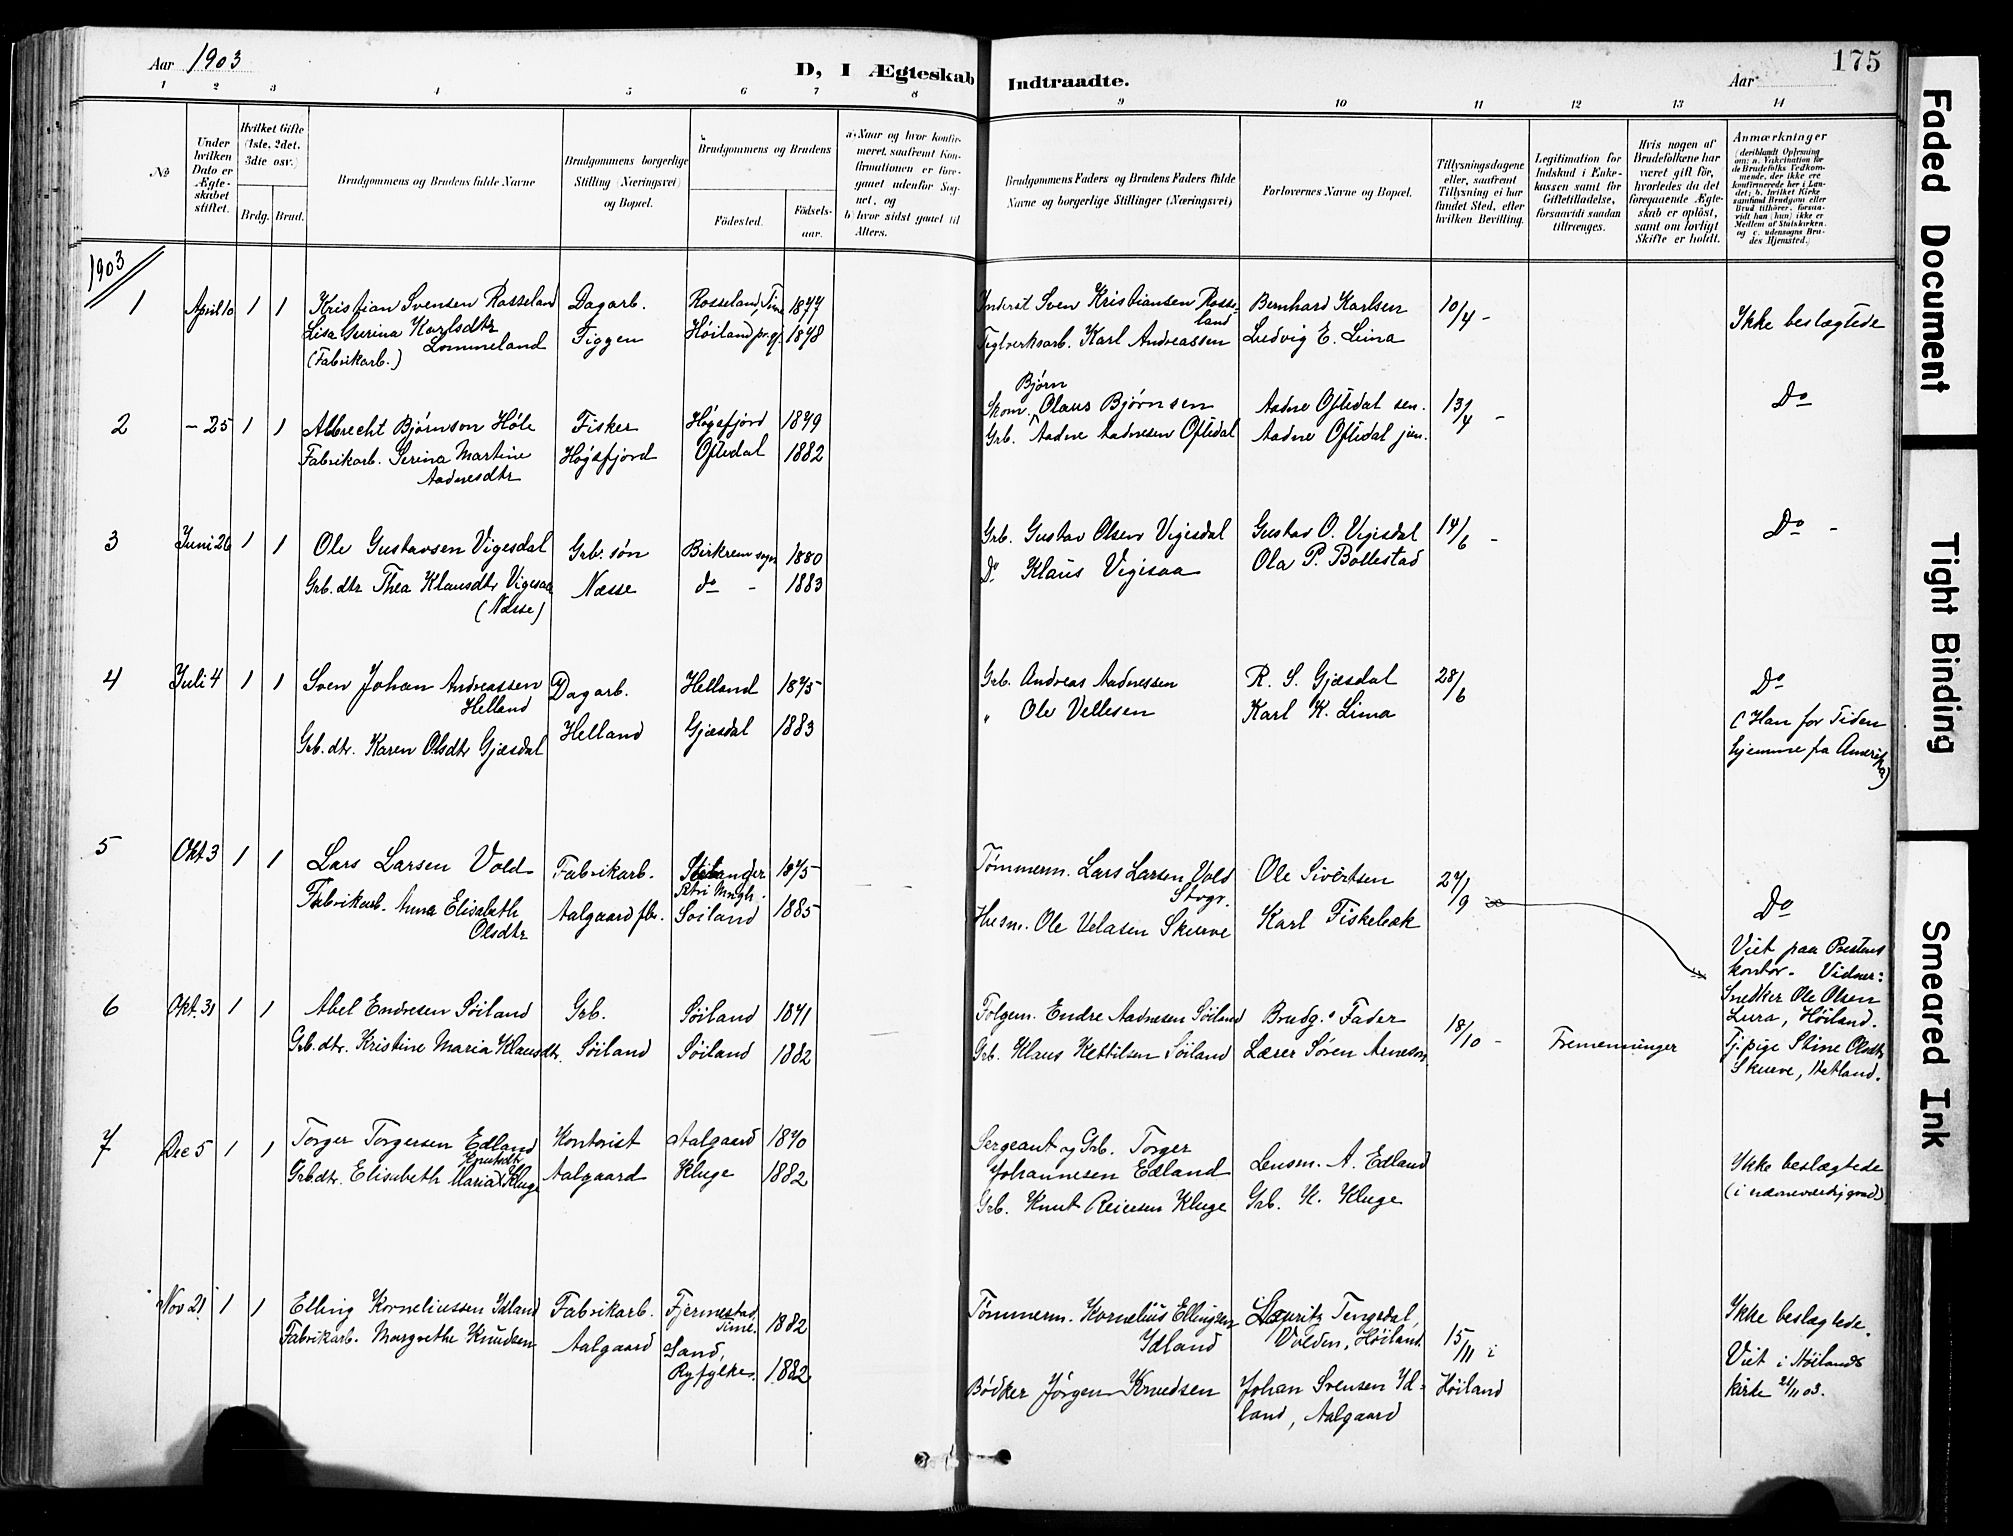 Aar 1903
D, I Ægteskab Indtraadte.
Aar
175
1 2 3 4 5 6 7 8 9 10 11 12 13 14
No
Under hvilken Dato er Ægteskabet stiftet.
Hvilket Gifte (1ste, 2det, 3die osv.)
Brdg. Brud.
Brudgommens og Brudens fulde Navne
Brudgommens borgerlige Stilling (Næringsvei) og Bopæl.
Brudgommens og Brudens
Fødested. Fødselsaar.
a. Naar og hvor konfirmeret, saafremt Konfirmationen er foregaaet udenfor Sognet, og
b. hvor sidst gaaet til Alters.
Brudgommens Faders og Brudens Faders fulde Navne og borgerlige Stillinger (Næringsvei)
Forlovernes Navne og Bopæl.
Tillysningsdagene eller, saafremt Tillysning ei har fundet Sted, efter hvilken Bevilling.
Legitimation for Indskud i Enkekassen samt for Giftetilladelse, forsaavidt saadan tiltrænges.
Hvis nogen af Brudefolkene har været gift før, hvorledes da det foregaaende Ægteskab er opløst, samt om lovligt Skifte er holdt.
Anmærkninger
(deriblandt Oplysning om: a. Vakcination for de Brudefolks Vedkommende, der ikke ere konfirmerede her i Landet; b. hvilket Kirkesamfund Brudgom eller Brud tilhører, forsaavidt han (hun) ikke er Medlem af Statskirken, og c. udensogns Brudes Hjemsted.)
1903
1 April 10 1 1 Kristian Svensen Rosseland Dagarb. Rosseland, Time 1877
Lisa Gurina Karlsdtr Lommeland Figgen Høiland pr.gj. 1878
(Fabrikarb.)
Inderst Sven Kristiansen Rosseland Bernhard Karlsen 10/4 -
Teglverksarb. Karl Andreassen Ludvig E. Lima
Ikke beslægtede
2 - 25 1 1 Albrecht Bjørnson Høle Fisker Høgsfjord 1879
Fabrikarb. Serina Martine Aadnesdtr Høgsfjord Oftedal 1882
Bjørn
Skom. Olaus Bjørnsen Aadne Oftedal sen. 13/4 -
Grb. Aadne Aadnesen Oftedal Aadne Oftedal jun.
Do
3 Juni 26 1 1 Ole Gustavsen Vigesdal Grb. søn Birkrem sogn 1880
Grb. dtr Thea Klausdtr Vigesaa Næsse do - 1883
(Næsse)
Grb. Gustav Olsen Vigesdal Gustav O. Vigisdal 14/6 -
Do Klaus Vigisaa Ola P. Bollestad
Do -
4 Juli 4 1 1 Sven Johan Andreassen Helland Dagarb. Helland 1875
Grb. dtr. Karen Olsdtr Gjæsdal Helland Gjæsdal 1883
Grb. Andreas Aadnessen R. S. Gjæsdal 28/6
" Ole Vellesen Karl K. Lima
Do
(Han for Tiden
hjemme fra Amerika)
5 Okt 3 1 1 Lars Larsen Vold Fabrikarb. Stavanger Petri Mngh. 1875
Fabrikarb. Anna Elisabeth Olsdtr Aalgaard fbr. Søiland 1885
Tømmerm. Lars Larsen Vold Stvgr. Ole Sivertsen 27/9
Husm. Ole Velasen Skurve Karl Fiskebæk
Do
Viet paa Prestens
kontor. Vidner:
Snedker Ole Olsen
Lura, Høiland.
Tj. pige Stine Olsdtr
Skurve, Hetland.
6 Okt. 31 1 1 Abel Endresen Søiland Grb. Søiland 1871
Grb. dtr. Kristine Maria Klausdtr. Søiland Søiland 1882
Folgem. Endre Aadnesen Søiland Brudg.s Fader 18/10 - Fremenninger
Grb. Klaus Kettilsen Søiland Lærer Søren Arneson
7 Dec 5 1 1 Torger Torgersen Edland Kontorist Aalgaard 1870
Grb. dtr. Elisabeth Maria Knutsdtr Kluge Aalgaard Kluge 1882
Sergeant og Grb. Torger
Johannesen Edland Lensm. A. Edland
Grb. Knut Reiersen Kluge Grb. K. Kluge
Ikke beslægtede
(i nærværdig grad)
Nov 21 1 1 Elling Korneliussen Idland Fabrikarb. Fjermestad Time. 1882
Fabrikarb. Margrethe Knudsen Aalgaard Sand, Ryfylke. 1882
Tømmerm. Kornelius Ellingsen Idland Lauritz Tengsdal, Volden, Høiland. 15/11 i
Bødker Jørgen Knudsen Johan Svensen Idland, Aalgaard Høiland
Ikke beslægtede.
Viet i Høilands
kirke 21/11 03.
Faded Document
Tight Binding
Smeared Ink